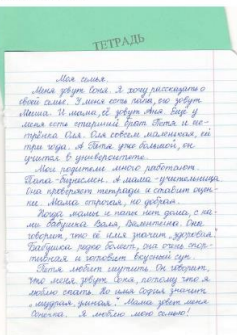 ТЕТРАДЬ
Моя семья.
Меня зовут Соня. Я хочу рассказать о
своей семье. У меня есть папа, его зовут
Миша. И мама, её зовут Аня. Ещё у
меня есть старший брат Петя и се-
стрёнка Оля. Оля совсем маленькая, ей
три года. А Петя уже большой, он
учится в университете.
Мои родители много работают.
Папа-бизнесмен. А мама-учительница.
Она проверяет тетради и ставит оцен-
ки. Мама строгая, но добрая.
Когда мамы и папы нет дома, с на-
ми бабушка Валя, Валентина. Она
говорит, что её имя значит "здоровая".
Бабушка редко болеет, она очень спор-
тивная и готовит вкусный суп.
Петя любит шутить. Он говорит,
что меня зовут Соня, потому что я
люблю спать. Но имя София значит
"мудрая, умная". Мама зовёт меня
Сонечка. Я люблю мою семью!